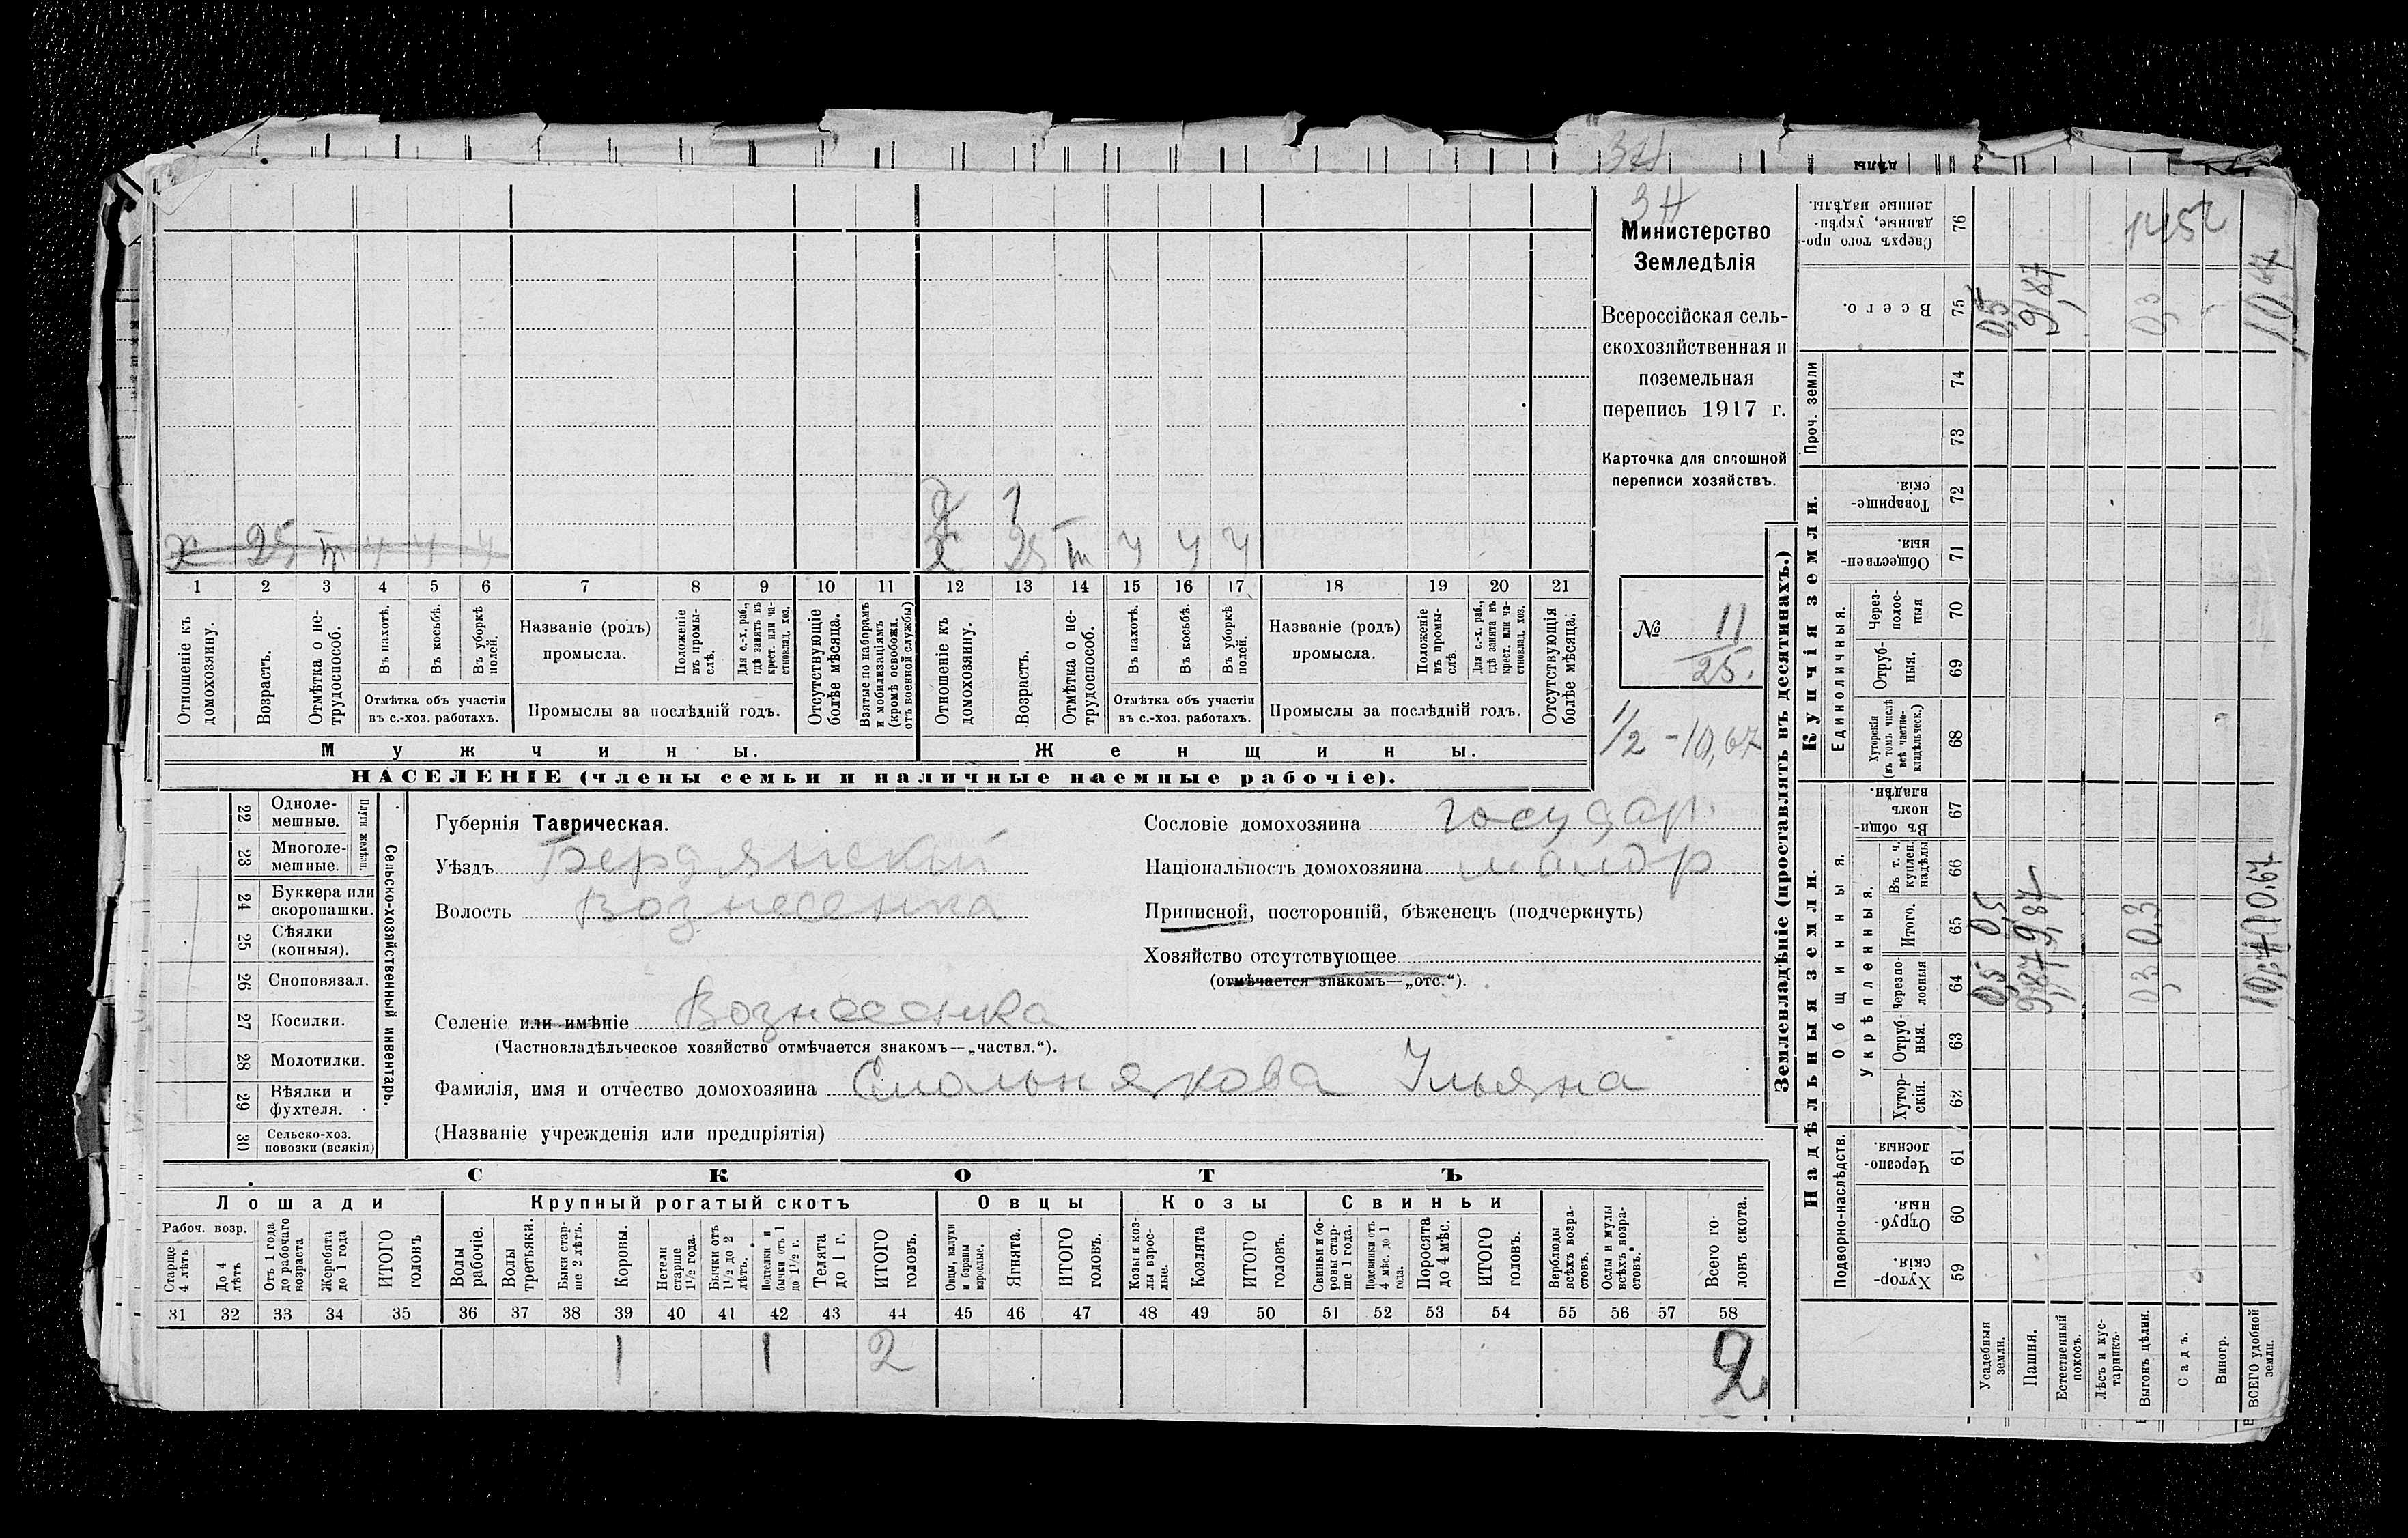 3Н
дѣлы
3Н
Министерство
Земледѣлія
Всероссійская сель-
скохозяйственная и
поземельная
перепись 1917 г.
Карточка для сплошной
переписи хозяйствъ.
№ 11
25.
1/2 - 10,67
х 25 т ч ч ч
д 1
х 25 т ч ч ч
1 2 3 4 5 6 7 8 9 10 11 12 13 14 15 16 17 18 19 20 21
Отношеніе къ домохозяину.
Возрастъ.
Отмѣтка о не-трудоспособ.
Въ пахотѣ.
Въ косьбѣ.
Въ уборкѣ полей.
Отмѣтка объ участіи
въ с.-хоз. работахъ.
Названіе (родъ)
промысла.
Положеніе въ промы-слѣ.
Для с.-х. раб., гдѣ занятъ въ крест. или ча-стновлад. хоз.
Промыслы за послѣдній годъ.
Отсутствующіе болѣе мѣсяца.
Взятые по наборамъ и мобилизаціямъ (кромѣ освобожд. отъ военной службы)
Отношеніе къ домохозяину.
Возрастъ.
Отмѣтка о не-трудоспособ.
Въ пахотѣ.
Въ косьбѣ.
Въ уборкѣ полей.
Отмѣтка объ участіи
въ с.-хоз. работахъ.
Названіе (родъ)
промысла.
Положеніе въ промы-слѣ
Для с.-х. раб., гдѣ занята въ крест. или ча-стновлад. хоз.
Промыслы за послѣдній годъ.
Отсутствующія болѣе мѣсяца.
Мужчины.
Женщины.
НАСЕЛЕНІЕ (члены семьи и наличные наемные рабочіе).
22 Одноле-мешные.
23 Многоле-мешные.
Плуги желѣзн.
24 Буккера или скоропашки.
25 Сѣялки (конныя).
26 Сноповязал.
27 Косилки.
28 Молотилки.
29 Вѣялки и фухтеля.
30 Сельско-хоз. повозки (всякія)
Сельско-хозяйственный инвентарь.
Губернія Таврическая.
Уѣздъ Бердянскій
Волость Вознесенка
Селеніе или имѣніе Вознесенка
(Частновладѣльческое хозяйство отмѣчается знакомъ—„частвл.“).
Фамилія, имя и отчество домохозяина Смольнякова Ульяна
(Названіе учрежденія или предпріятія)
Сословіе домохозяина государ.
Національность домохозяина малор
Приписной, посторонній, бѣженецъ (подчеркнуть)
Хозяйство отсутствующее
(отмѣчается знакомъ—„отс.“).
СКОТЪ
Лошади
Крупный рогатый скотъ
Овцы
Козы
Свиньи
Рабоч. возр.
Старше 4 лѣтъ
До 4 лѣтъ
Отъ 1 года до рабочаго возраста
Жеребята до 1 года
ИТОГО головъ
Волы рабочіе.
Волы третьяки.
Быки стар-ше 2 лѣтъ.
Коровы.
Нетели старше 1½ года.
Бычки отъ 1½ до 2 лѣтъ.
Подтелки и бычки отъ 1 до 1½ г.
Телята до 1 г.
ИТОГО головъ.
Овцы, валухи и бараны взрослые.
Ягнята.
ИТОГО головъ.
Козы и коз-лы взрос-лые.
Козлята
ИТОГО головъ.
Свиньи и бо-ровы стар-ше 1 года.
Подсвинки отъ 4 мѣс. до 1 года.
Поросята до 4 мѣс.
ИТОГО головъ.
Верблюды всѣхъ возра-стовъ.
Ослы и мулы всѣхъ возра-стовъ.
Всего го-ловъ скота.
31 32 33 34 35 36 37 38 39 40 41 42 43 44 45 46 47 48 49 50 51 52 53 54 55 56 57 58
1 1 2 2
Землевладѣніе (проставлять въ десятинахъ.)
Надѣльныя земли.
Купчія земли.
Проч. земли
Подворно-наслѣдств.
Общинныя.
Укрѣпленныя.
Единоличныя.
Хутор-скія. 59
Отруб-ныя. 60
Черезпо-лосныя 61
Хутор-скія. 62
Отруб-ныя. 63
Черезпо-лосныя 64
Итого. 65
Въ т. ч. куплен. надѣлы 66
Въ общи-номъ владѣн. 67
Хуторскія (въ томъ числѣ всѣ частно-владѣльческ.) 68
Отруб-ныя. 69
Через-полос-ныя 70
Обществен-ныя. 71
Товарище-скія. 72
73
74
Всего. 75
Сверхъ того про-данные, укрѣп-ленные надѣлы. 76
Усадебныя земли. 0,5 0,5 0,5
Пашня. 9,87 9,87 9,87
Естественный покосъ.
Лѣсъ и кус-тарникъ.
Выгонъ цѣлин. 0,3 0,3 0,3
Садъ.
Виногр.
ВСЕГО удобной земли. 10,67 10,67 10,67
1452